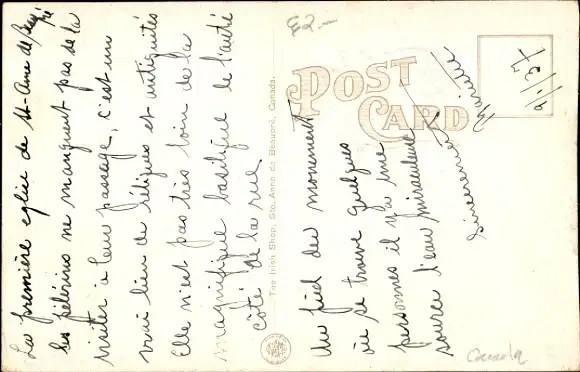 La première eglise de St-Anne de Beaupré
les pélérins ne manquent pas de la
visiter à leur passage, c'est un
vrai lieu de réliques et antiquités
Elle n'est pas très loin de la
magnifique basilique de l'autre
côté de la rue.
The Irish Shop, Ste. Anne de Beaupré, Canada.
E2.—
POST
CARD
Au pied du monument
où se trouve quelques
personnes il y a une
source d'eau miraculeuse
sincerement
Canada